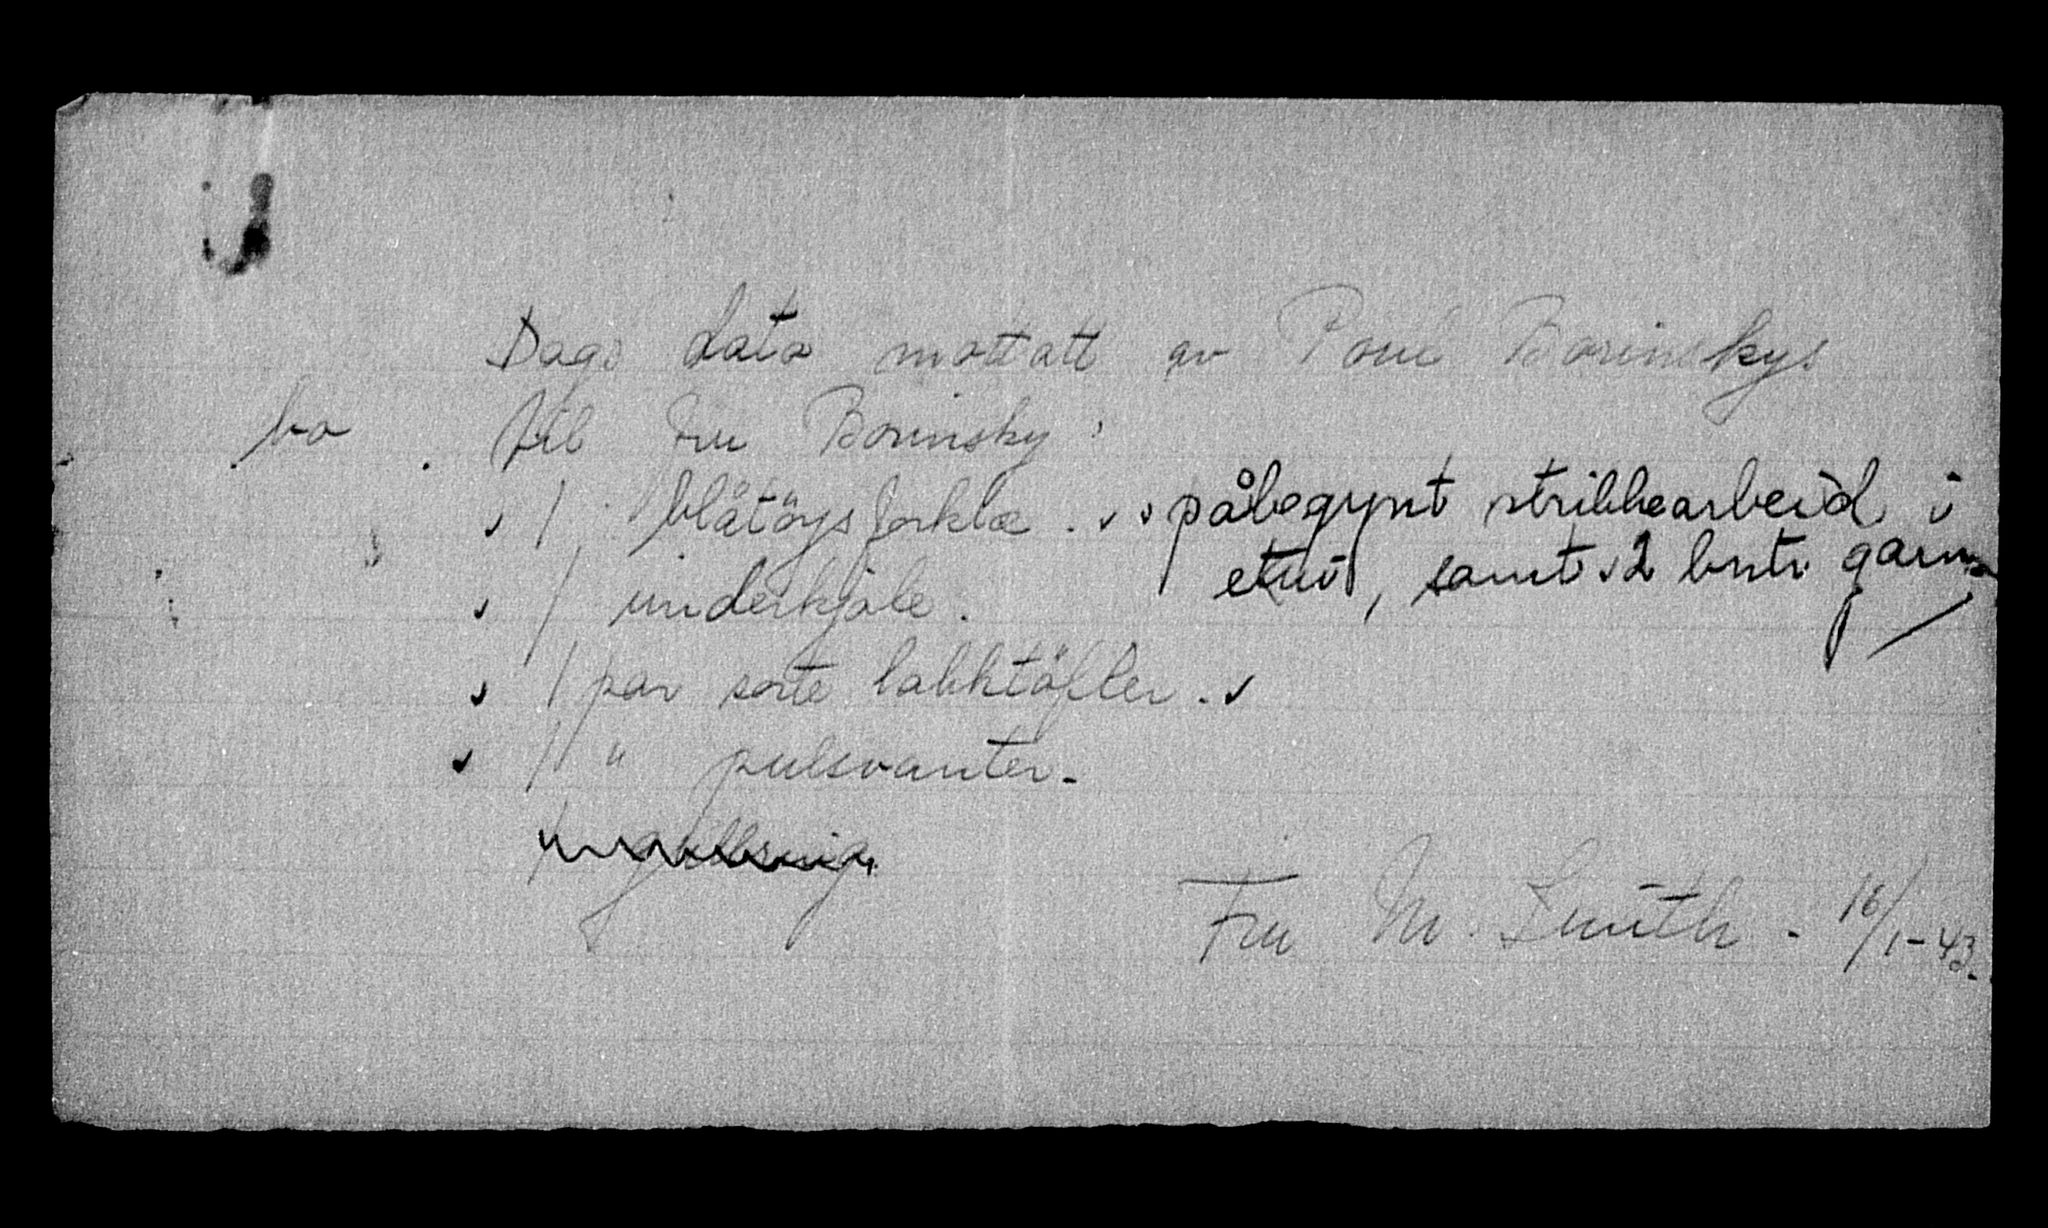 Dags dato mottatt av Poul Borinskys
bo til Fru Borinsky:
1 blåtöys forklæ. påbegynt strikkearbeid i
etui, samt 2 bnt. garn
1 underkjole.
1 par sorte lakktöfler.
1 " pulsvanter.
Fru M. Smith - 16/1-43.